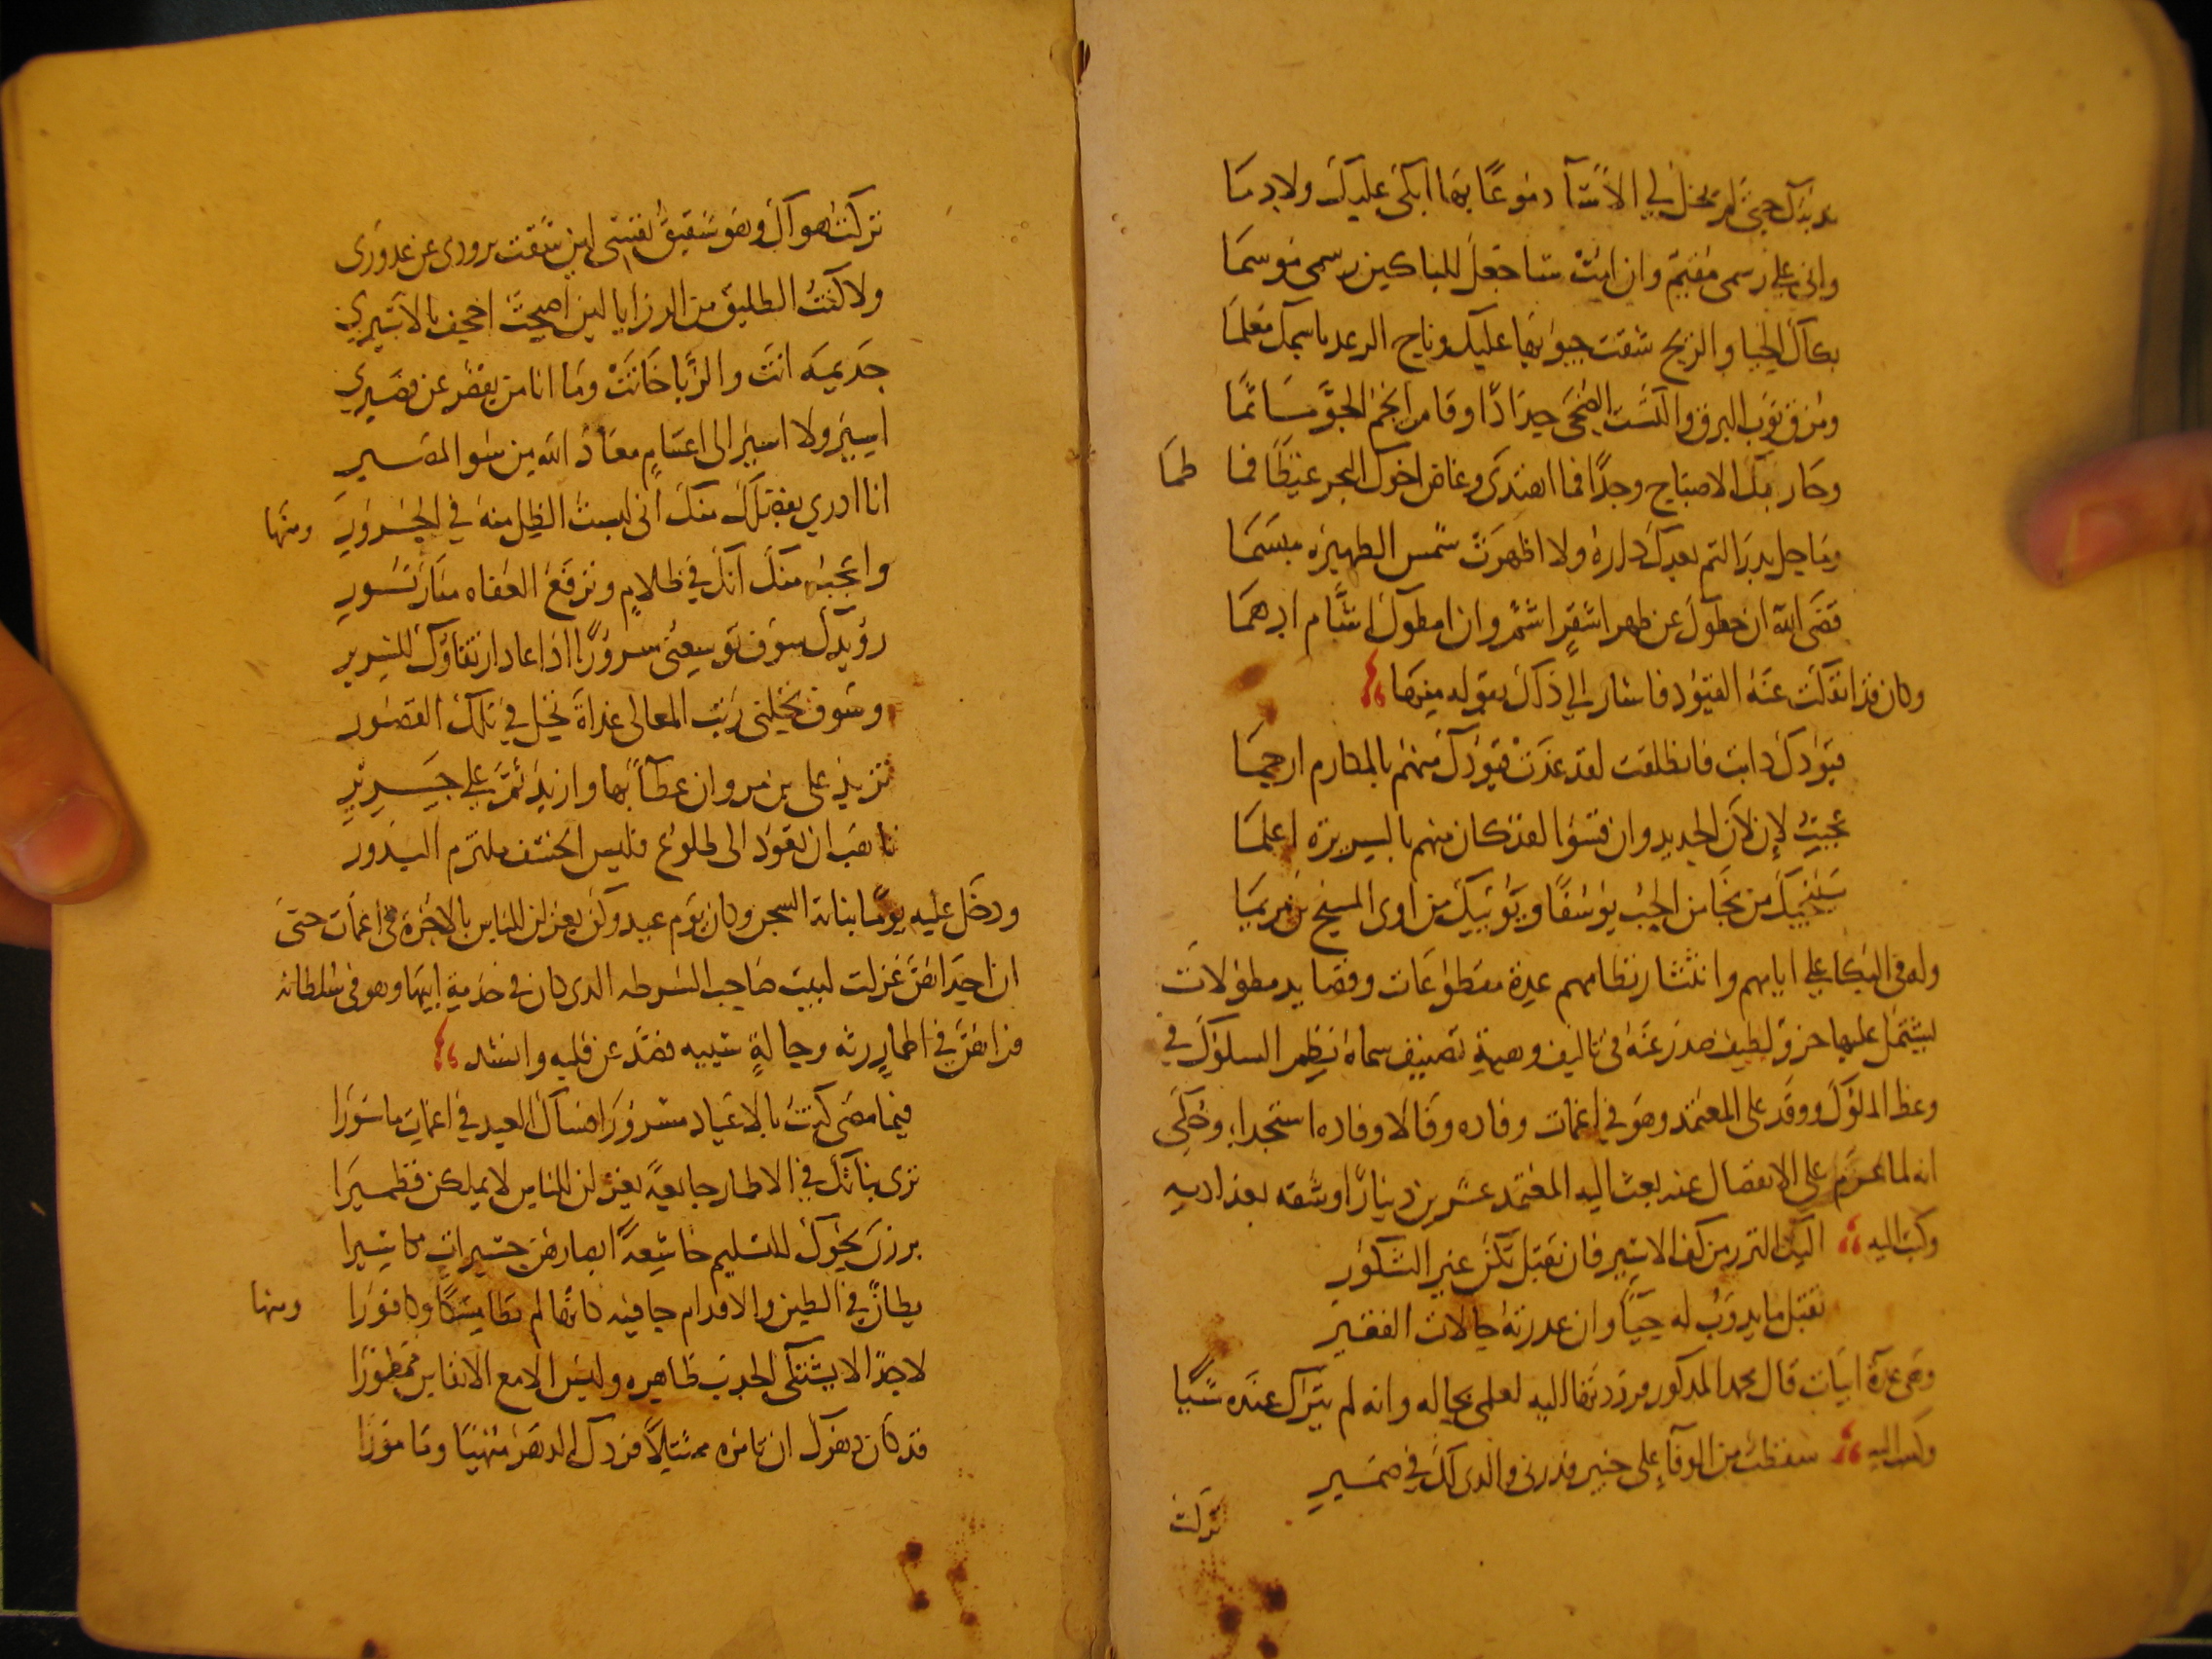 ندبتك حتى لم يخل لي الاسَى دموعًا بها ابكى عليك ولا دما
واني على رسمى مقيم وان امت ساجعل للباكين رسمى موسما
بكاك الحيا والريح شقت جيوبها عليك وناح الرعد باسمك معلما
ومزق ثوب البرق واكتست الضحى حدادًا وقامت انجم الجوّ مأتما
وحار بك الاصباح وجدًا فما اهتدى وغاض اخوك البحر غيظًا فما طمَا
وما حل بدر التم بعدك دارة ولا اظهرت شمس الظهيرة مبسما
قضى الله ان حطوك عن ظهر اشقر اشم وان امطوك اشام ادهما
وكان قد انفكت عنه القيود فاشار الي ذلك بقوله منها
قيودك ذابت فانطلقت لقد غدت قيودك منهم بالمكارم ارحما
عجبت لان لان الحديد وان قسوا لقد كان منهم بالسريرة اعلما
سينجيك من نجا من الجب يوسفًا ويؤويك من اوى المسيح بن مريما
وله في البكا على ايامهم وانتثار نظامهم عدة مقطوعات وقصايد مطولات
يشتمل عليها جزو لطيف صدر عنه في تاليف وهيئة تصنيف سماه نظم السلوك في
وعظ الملوك ووفد على المعتمد وهو في اغمات وفادة وفالا وفاده استجدا وحكي
انه لما عزم على الانفصال عنه بعث اليه المعتمد عشرين دينارًا وشقه بغداديه
وكتب اليه اليك النزر من كف الاسير فان تقبل تكن عين الشكور
تقبل ما يذوب له حيًا وان عذرته حالات الفقير
وهي عدة ابيات قال محمد المذكور فرددتها اليه لعلمي بحاله وانه لم يترك عنده شيا
وكتب اليه سقطت من الوفاء على خبير فذرني والذي لك في ضمير
تركت
تركت هواك وهو شقيق نفسي لين شقت برودي عن غدوري
ولا كنت الطليق من الرزايا لين اصبحت اجحف بالاسير
جذيمة انت والزبا خانت وما انا من يقصر عن قصير
اسير ولا اسير الى اغتنام معاذ الله من سو المصير
انا ادري بفضلك منك اني لبست الظل منه في الحرور ومنها
واعجب منك انك في ظلام وترفع للعفاه منار نور
رويدك سوف توسعني سرورًا اذا عاد ارتقاؤك للسرير
وسوف تحلني رتب المعالي غداة تحل في تلك القصور
تزيد على بن مروان عطاءً بها وازيد ثم على جرير
تاهب ان تعود الى طلوع فليس الخسف ملتزم البدور
ودخل عليه يومًا بناته السجن وكان يوم عيد وكن يغزلن للناس بالاجرة في اغمات حتى
ان احداهن غزلت لبيت صاحب الشرطه الذي كان في خدمة ابيها وهو في سلطانه
فراهن في اطمار رثه وحالة سييه فصدعن قلبه وانشد
فيما مضى كنت بالاعياد مسرورا فساك العيد في اغمات ماسورا
ترى بناتك في الاطمار جايعة يغزلن للناس لا يملكن قطميرا
برزن نحوك للتسليم خاشعة ابصارهن حسيرات مكاسيرا
يطان في الطين والاقدام حافيه كانها لم تطا مسكًا وكافورا ومنها
لا خد الا يشتكى الجدب ظاهره وليس الا مع الانفاس ممطورا
قد كان دهرك ان تامره ممتثلًا فردك الدهر منهيًا ومامورا